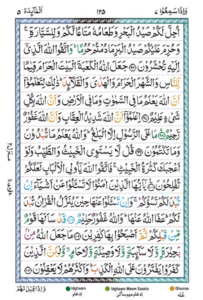 وَاِذَا سَمِعُوْا ٧ ١٢٥ اَلْمَآئِدَة ٥
اُحِلَّ لَكُمْ صَيْدُ الْبَحْرِ وَطَعَامُهٗ مَتَاعًا لَّكُمْ وَلِلسَّيَّارَةِ ۚ
وَحُرِّمَ عَلَيْكُمْ صَيْدُ الْبَرِّ مَا دُمْتُمْ حُرُمًا ؕ وَاتَّقُوا اللّٰهَ الَّذِيْۤ
اِلَيْهِ تُحْشَرُوْنَ جَعَلَ اللّٰهُ الْكَعْبَةَ الْبَيْتَ الْحَرَامَ قِيٰمًا
لِّلنَّاسِ وَالشَّهْرَ الْحَرَامَ وَالْهَدْيَ وَالْقَلَآئِدَ ؕ ذٰلِكَ لِتَعْلَمُوْۤا
اَنَّ اللّٰهَ يَعْلَمُ مَا فِي السَّمٰوٰتِ وَمَا فِي الْاَرْضِ وَاَنَّ اللّٰهَ بِكُلِّ
شَيْءٍ عَلِيْمٌ اِعْلَمُوْۤا اَنَّ اللّٰهَ شَدِيْدُ الْعِقَابِ وَاَنَّ اللّٰهَ غَفُوْرٌ
رَّحِيْمٌ مَا عَلَى الرَّسُوْلِ اِلَّا الْبَلٰغُ ؕ وَاللّٰهُ يَعْلَمُ مَا تُبْدُوْنَ
وَمَا تَكْتُمُوْنَ قُلْ لَّا يَسْتَوِي الْخَبِيْثُ وَالطَّيِّبُ وَلَوْ
اَعْجَبَكَ كَثْرَةُ الْخَبِيْثِ ۚ فَاتَّقُوا اللّٰهَ يٰۤاُولِي الْاَلْبَابِ لَعَلَّكُمْ
تُفْلِحُوْنَ يٰۤاَيُّهَا الَّذِيْنَ اٰمَنُوْا لَا تَسْـَٔلُوْا عَنْ اَشْيَآءَ اِنْ
تُبْدَ لَكُمْ تَسُؤْكُمْ ۚ وَاِنْ تَسْـَٔلُوْا عَنْهَا حِيْنَ يُنَزَّلُ الْقُرْاٰنُ تُبْدَ
لَكُمْ ؕ عَفَا اللّٰهُ عَنْهَا ؕ وَاللّٰهُ غَفُوْرٌ حَلِيْمٌ قَدْ سَاَلَهَا قَوْمٌ
مِّنْ قَبْلِكُمْ ثُمَّ اَصْبَحُوْا بِهَا كٰفِرِيْنَ مَا جَعَلَ اللّٰهُ مِنْۢ
بَحِيْرَةٍ وَّلَا سَآئِبَةٍ وَّلَا وَصِيْلَةٍ وَّلَا حَامٍ ۙ وَّلٰكِنَّ الَّذِيْنَ
كَفَرُوْا يَفْتَرُوْنَ عَلَى اللّٰهِ الْكَذِبَ ؕ وَاَكْثَرُهُمْ لَا يَعْقِلُوْنَ
وَاِذَا قِيْلَ لَهُمْ